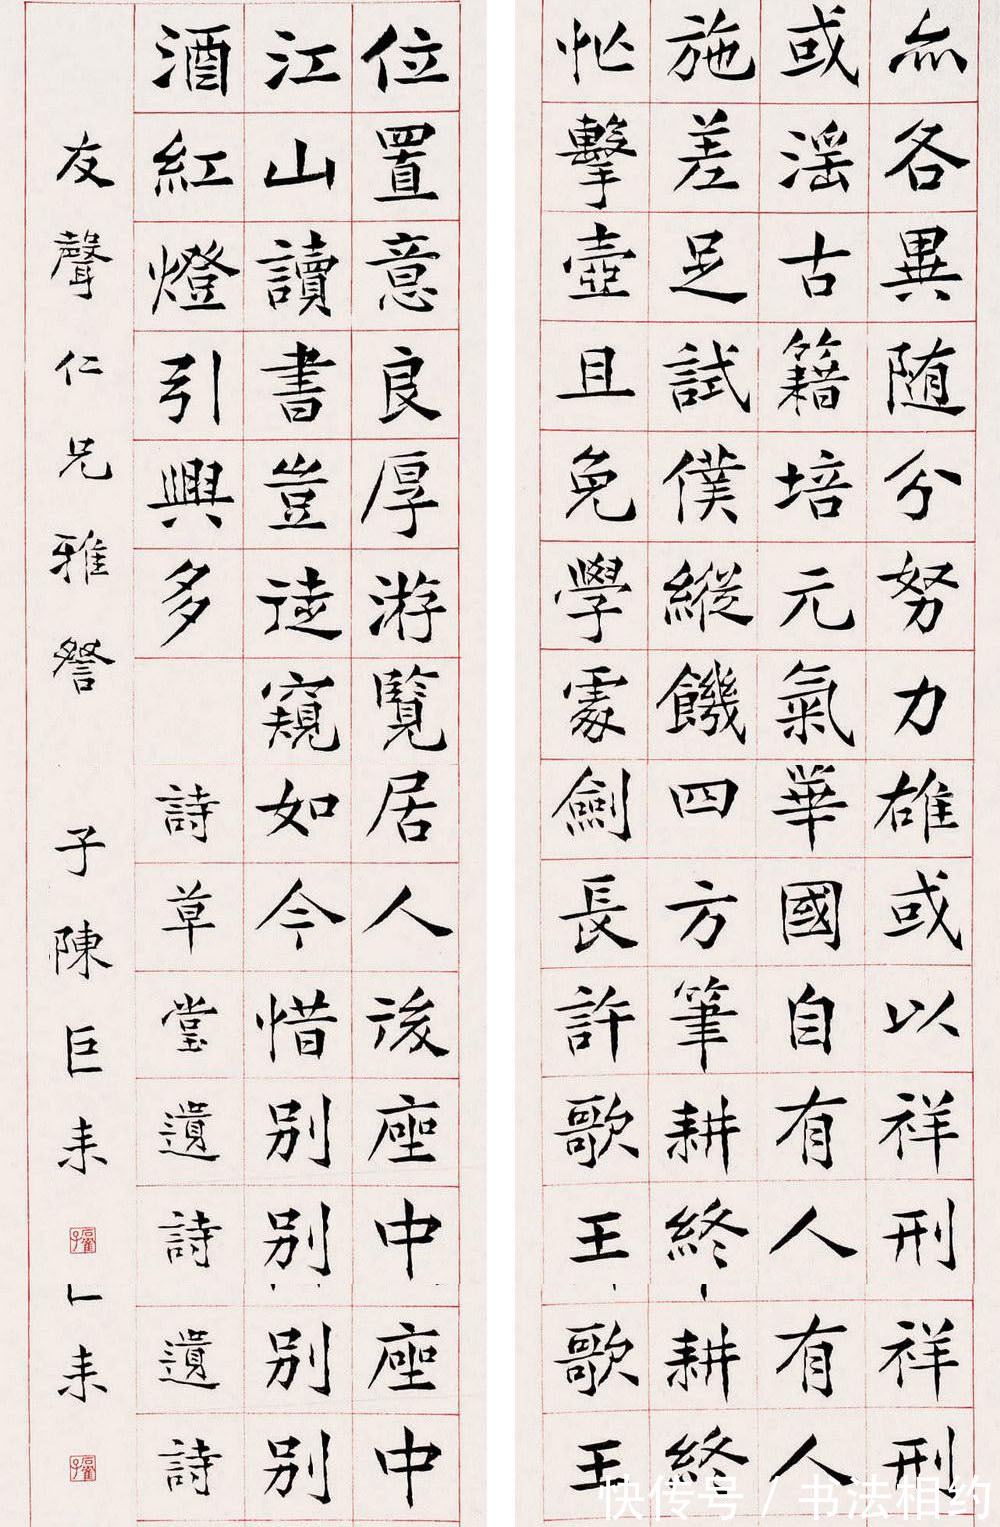 亦各異随分努力雄或以祥刑祥刑
或滛古籍培元氣華國自有人有人
施差足試僕縱饑四方筆耕終耕終
忙擊壺且免學處劍長許歌王歌王
位置意良厚游覽居人後座中座中
江山讀書豈逺窺如今惜別別別別
酒紅燈引興多 詩草堂遺詩遺詩
友聲仁兄雅詧 子陳巨耒 耒
快传号 / 书法相约